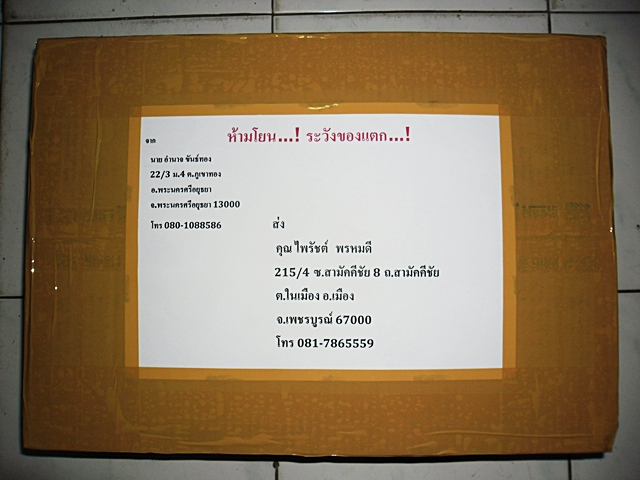 ห้ามโยน...! ระวังของแตก...!
จาก
นาย อำนาจ ขันธ์ทอง
22/3 ม.4 ต.ภูเขาทอง
อ.พระนครศรีอยุธยา
จ.พระนครศรีอยุธยา 13000
โทร 080-1088586
ส่ง
คุณ ไพรัชต์ พรหมดี
215/4 ซ.สามัคคีชัย 8 ถ.สามัคคีชัย
ต.ในเมือง อ.เมือง
จ.เพชรบูรณ์ 67000
โทร 081-7865559